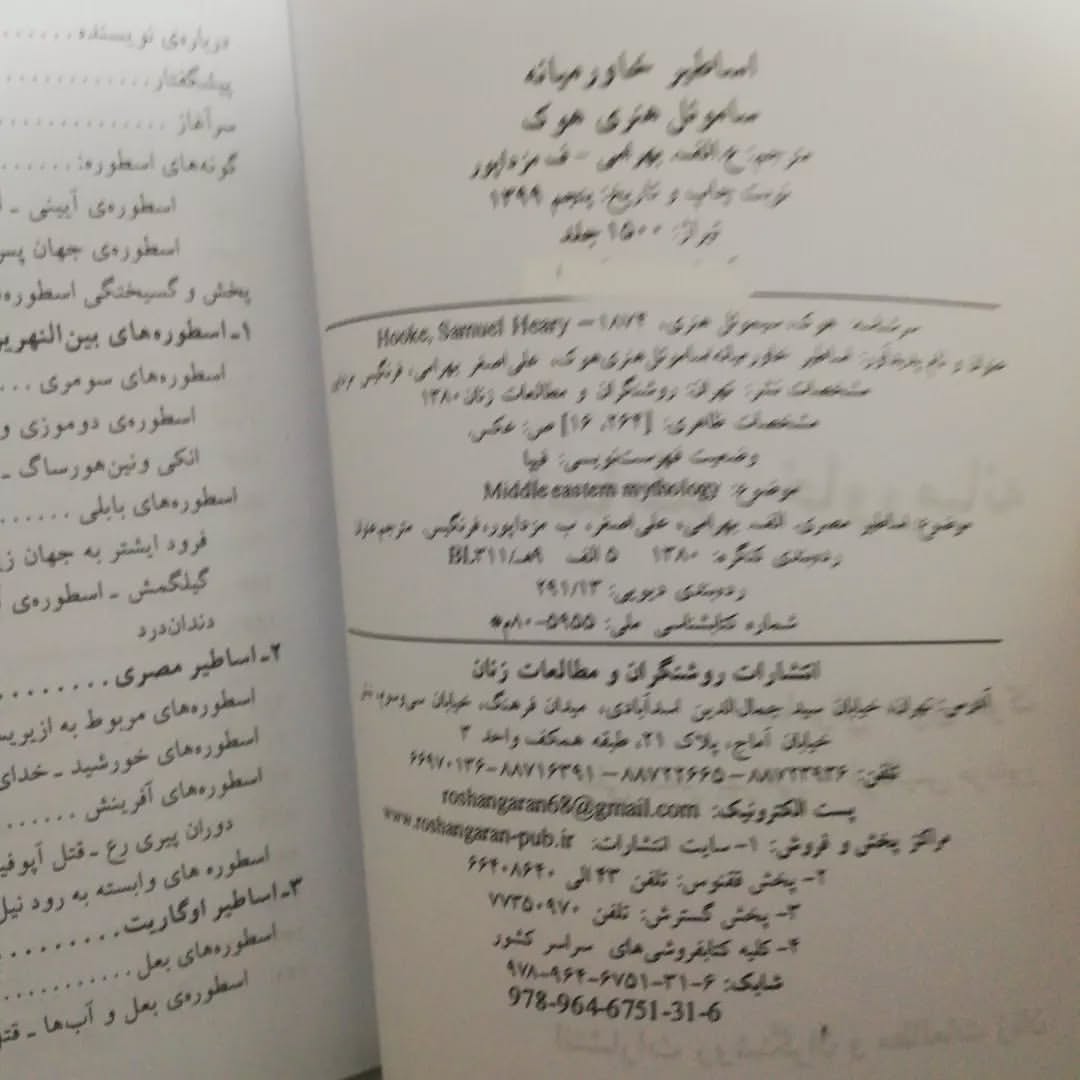 اساطیر خاورمیانه
ساموئل هنری هوک
مترجم: ع.الف. بهرامی - ف. مزداپور
نوبت چاپ و تاریخ: پنجم ۱۳۹۹
تیراژ: ۱۵۰۰ جلد
سرشناسه: هوک، سیموئل هنری، ۱۸۷۴ – Hooke, Samuel Heary
عنوان و نام پدیدآور: اساطیر خاورمیانه/ساموئل هنری هوک، علی اصغر بهرامی، فرنگیس مزداپور
مشخصات نشر: تهران: روشنگران و مطالعات زنان ۱۳۸۰
مشخصات ظاهری: [۲۶۴، ۱۶] ص: عکس
وضعیت فهرست‌نویسی: فیپا
موضوع: Middle eastern mythology
موضوع: اساطیر مصری. الف. بهرامی، علی اصغر، ب. مزداپور، فرنگیس، مترجم.
رده‌بندی کنگره: ۱۳۸۰ ۵ الف ۹هـ/BL۳۱۱
رده‌بندی دیویی: ۲۹۱/۱۳
شماره کتابشناسی ملی: ۵۹۵۵-۸۰م*
انتشارات روشنگران و مطالعات زنان
آدرس: تهران، خیابان سید جمال‌الدین اسدآبادی، میدان فرهنگ، خیابان سی‌وسوم، نبش
خیابان آماج، پلاک ۲۱، طبقه همکف واحد ۲
تلفن: ۸۸۷۲۳۹۳۶ – ۸۸۷۲۲۶۶۵ – ۸۸۷۱۶۳۹۱-۶۶۹۷۰۱۳۶
پست الکترونیک: roshangaran68@gmail.com
مراکز پخش و فروش: ۱- سایت انتشارات: www.roshangaran-pub.ir
۲- پخش ققنوس: تلفن ۴۳ الی ۶۶۴۰۸۶۴۰
۳- پخش گسترش: تلفن ۷۷۳۵۰۹۷۰
۴- کلیه کتابفروشی‌های سراسر کشور
شابک: ۶-۳۱-۶۷۵۱-۹۶۴-۹۷۸
978-964-6751-31-6
درباره‌ی نویسنده......
پیشگفتار............
سرآغاز ..............
گونه‌های اسطوره:......
اسطوره‌ی آیینی -
اسطوره‌ی جهان پس
پخش و گسیختگی اسطوره‌
۱- اسطوره‌های بین‌النهرین
اسطوره‌های سومری ....
اسطوره‌ی دوموزی و
انکی و نین‌هورساگ -
اسطوره‌های بابلی ......
فرود ایشتر به جهان
گیلگمش - اسطوره‌ی
دندان‌درد
۲- اساطیر مصری.........
اسطوره‌های مربوط به ازیریس
اسطوره‌های خورشید - خدای
اسطوره‌های آفرینش ......
دوران پیری رع - قتل آپوفیس
اسطوره های وابسته به رود نیل
۳- اساطیر اوگاریت.........
اسطوره‌های بعل ............
اسطوره‌ی بعل و آب‌ها -